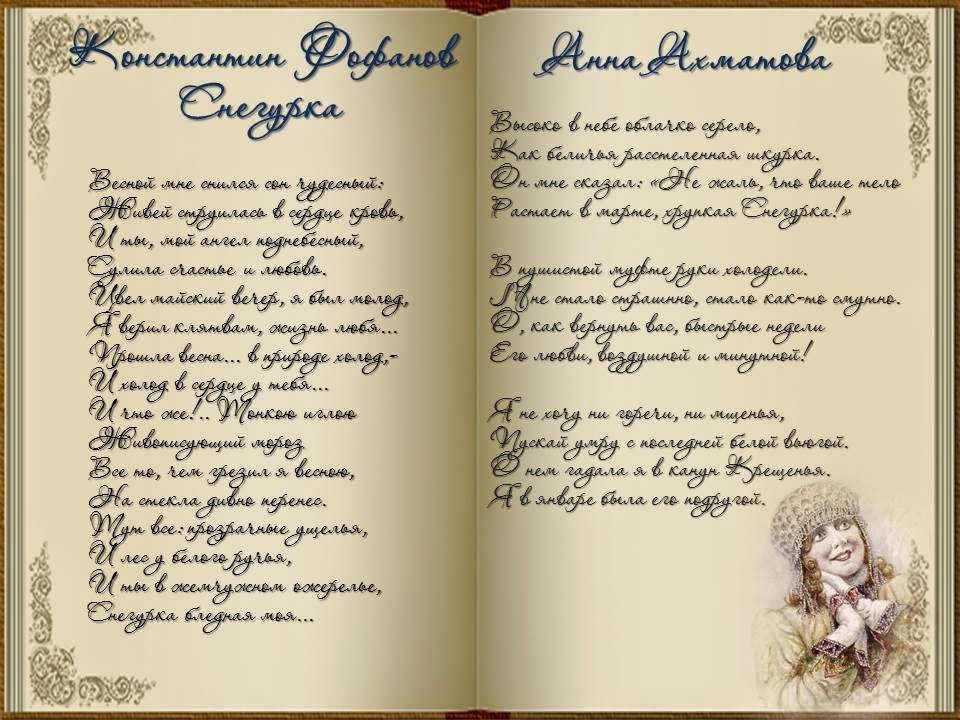 Константин Фофанов
Снегурка
Весной мне снился сон чудесный:
Живей струилась в сердце кровь,
И ты, мой ангел поднебесный,
Сулила счастье и любовь.
Цвел майский вечер, я был молод,
Я верил клятвам, жизнь любя...
Прошла весна... в природе холод,-
И холод в сердце у тебя...
И что же!.. Тонкою иглою
Живописующий мороз
Все то, чем грезил я весною,
На стекла дивно перенес.
Тут все: прозрачные ущелья,
И лес у белого ручья,
И ты в жемчужном ожерелье,
Снегурка бледная моя...
Анна Ахматова
Высоко в небе облачко серело,
Как беличья расстеленная шкурка.
Он мне сказал: «Не жаль, что ваше тело
Растает в марте, хрупкая Снегурка!»
В пушистой муфте руки холодели.
Мне стало страшно, стало как-то смутно.
О, как вернуть вас, быстрые недели
Его любви, воздушной и минутной!
Я не хочу ни горечи, ни мщенья,
Пускай умру с последней белой вьюгой.
О нем гадала я в канун Крещенья.
Я в январе была его подругой.